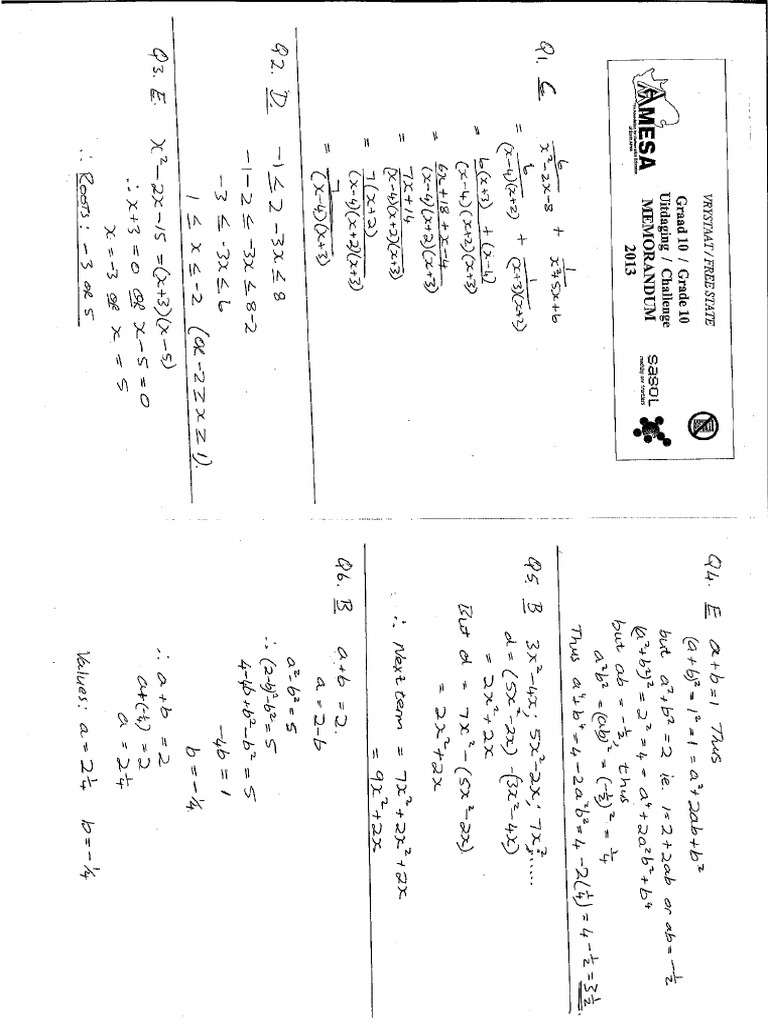 VRYSTAAT / FREE STATE
AMESA
Graad 10 / Grade 10
Uitdaging / Challenge
MEMORANDUM
2013
sasol
Q1. C 6/(x²-2x-8) + 1/(x²+5x+6)
= 6/((x-4)(x+2)) + 1/((x+3)(x+2))
= (6(x+3) + (x-4))/((x-4)(x+2)(x+3))
= (6x+18+x-4)/((x-4)(x+2)(x+3))
= (7x+14)/((x-4)(x+2)(x+3))
= 7(x+2)/((x-4)(x+2)(x+3))
= 7/((x-4)(x+3))
Q2. D. -1 ≤ 2-3x ≤ 8
-1-2 ≤ -3x ≤ 8-2
-3 ≤ -3x ≤ 6
1 ≤ x ≤ -2 (OR -2 ≥ x ≥ 1).
Q3. E. x²-2x-15 = (x+3)(x-5)
∴ x+3=0 OR x-5=0
x=-3 OR x=5
∴ Roots: -3 OR 5
Q4. E a+b=1 Thus
(a+b)²=1²=1=a²+2ab+b²
but a²+b²=2 ie. 1=2+2ab or ab=-½
(a²+b²)²=2²=4=a⁴+2a²b²+b⁴
but ab=-½, thus
a²b²=(ab)²=(-½)²=¼
Thus a⁴+b⁴=4-2a²b²=4-2(¼)=4-½=3½.
Q5. B 3x²-4x; 5x²-2x; 7x²; ......
d=(5x²-2x)-(3x²-4x)
=2x²+2x
But d=7x²-(5x²-2x)
=2x²+2x
∴ Next term = 7x²+2x²+2x
= 9x²+2x
Q6. B a+b=2.
a=2-b
a²-b²=5
∴ (2-b)²-b²=5
4-4b+b²-b²=5
-4b=1
b=-¼
∴ a+b=2
a+(-¼)=2
a=2¼
Values: a=2¼ b=-¼